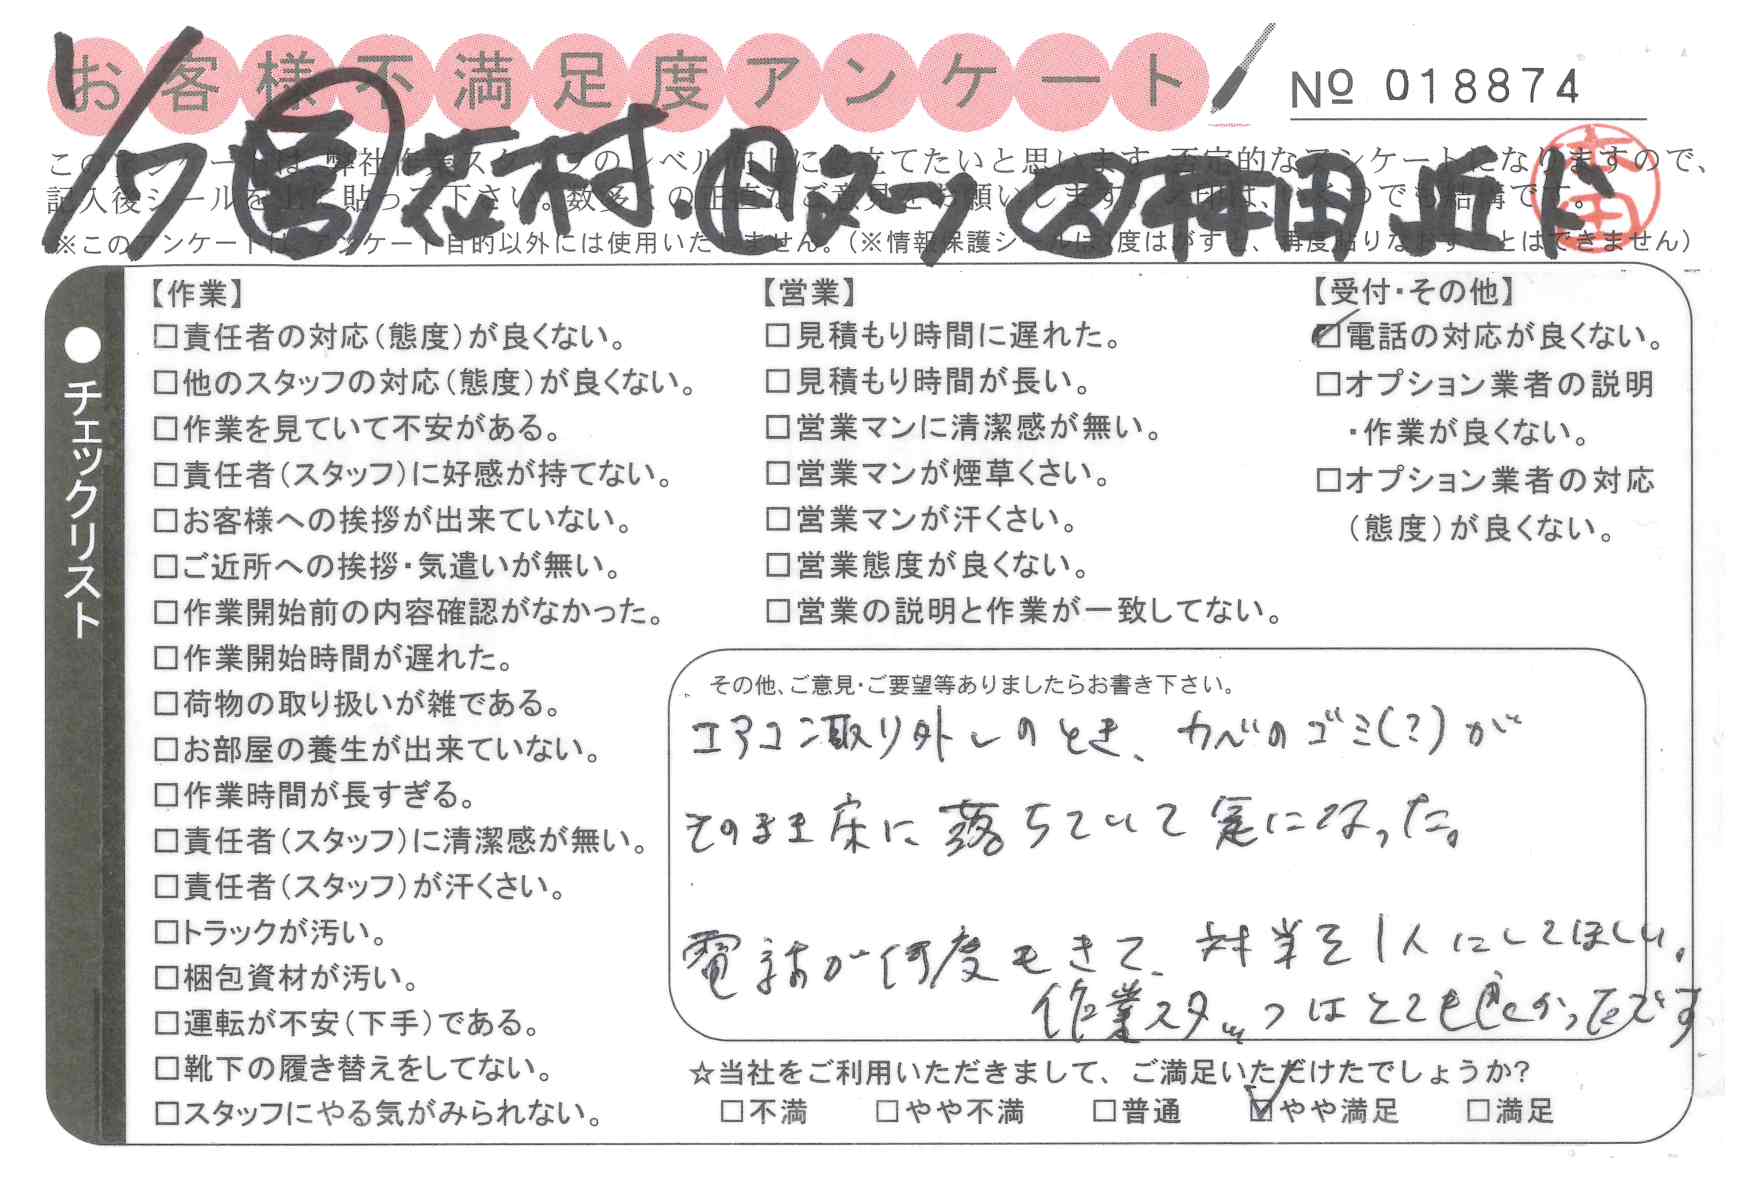 お客様不満足度アンケート
№ 018874
1/7 営 志村・目黒 ② 神田 近ト
本田
このアンケートは、弊社作業スタッフのレベル向上に役立てたいと思います。否定的なアンケートになりますので、
記入後シールを上に貼って下さい。数多くの正直なご意見をお願いします。
※このアンケートは、アンケート目的以外には使用いたしません。(※情報保護シールは1度はがすと、再度貼りなおすことはできません)
●チェックリスト
【作業】
□責任者の対応(態度)が良くない。
□他のスタッフの対応(態度)が良くない。
□作業を見ていて不安がある。
□責任者(スタッフ)に好感が持てない。
□お客様への挨拶が出来ていない。
□ご近所への挨拶・気遣いが無い。
□作業開始前の内容確認がなかった。
□作業開始時間が遅れた。
□荷物の取り扱いが雑である。
□お部屋の養生が出来ていない。
□作業時間が長すぎる。
□責任者(スタッフ)に清潔感が無い。
□責任者(スタッフ)が汗くさい。
□トラックが汚い。
□梱包資材が汚い。
□運転が不安(下手)である。
□靴下の履き替えをしてない。
□スタッフにやる気がみられない。
【営業】
□見積もり時間に遅れた。
□見積もり時間が長い。
□営業マンに清潔感が無い。
□営業マンが煙草くさい。
□営業マンが汗くさい。
□営業態度が良くない。
□営業の説明と作業が一致してない。
【受付・その他】
☑電話の対応が良くない。
□オプション業者の説明
・作業が良くない。
□オプション業者の対応
(態度)が良くない。
その他、ご意見・ご要望等ありましたらお書き下さい。
エアコン取り外しのとき、カベのゴミ(?)が
そのまま床に落ちていて気になった。
電話が何度もきて、対業を1人にしてほしい。
作業スタッフはとても良かったです
☆当社をご利用いただきまして、ご満足いただけたでしょうか?
□不満 □やや不満 □普通 ☑やや満足 □満足